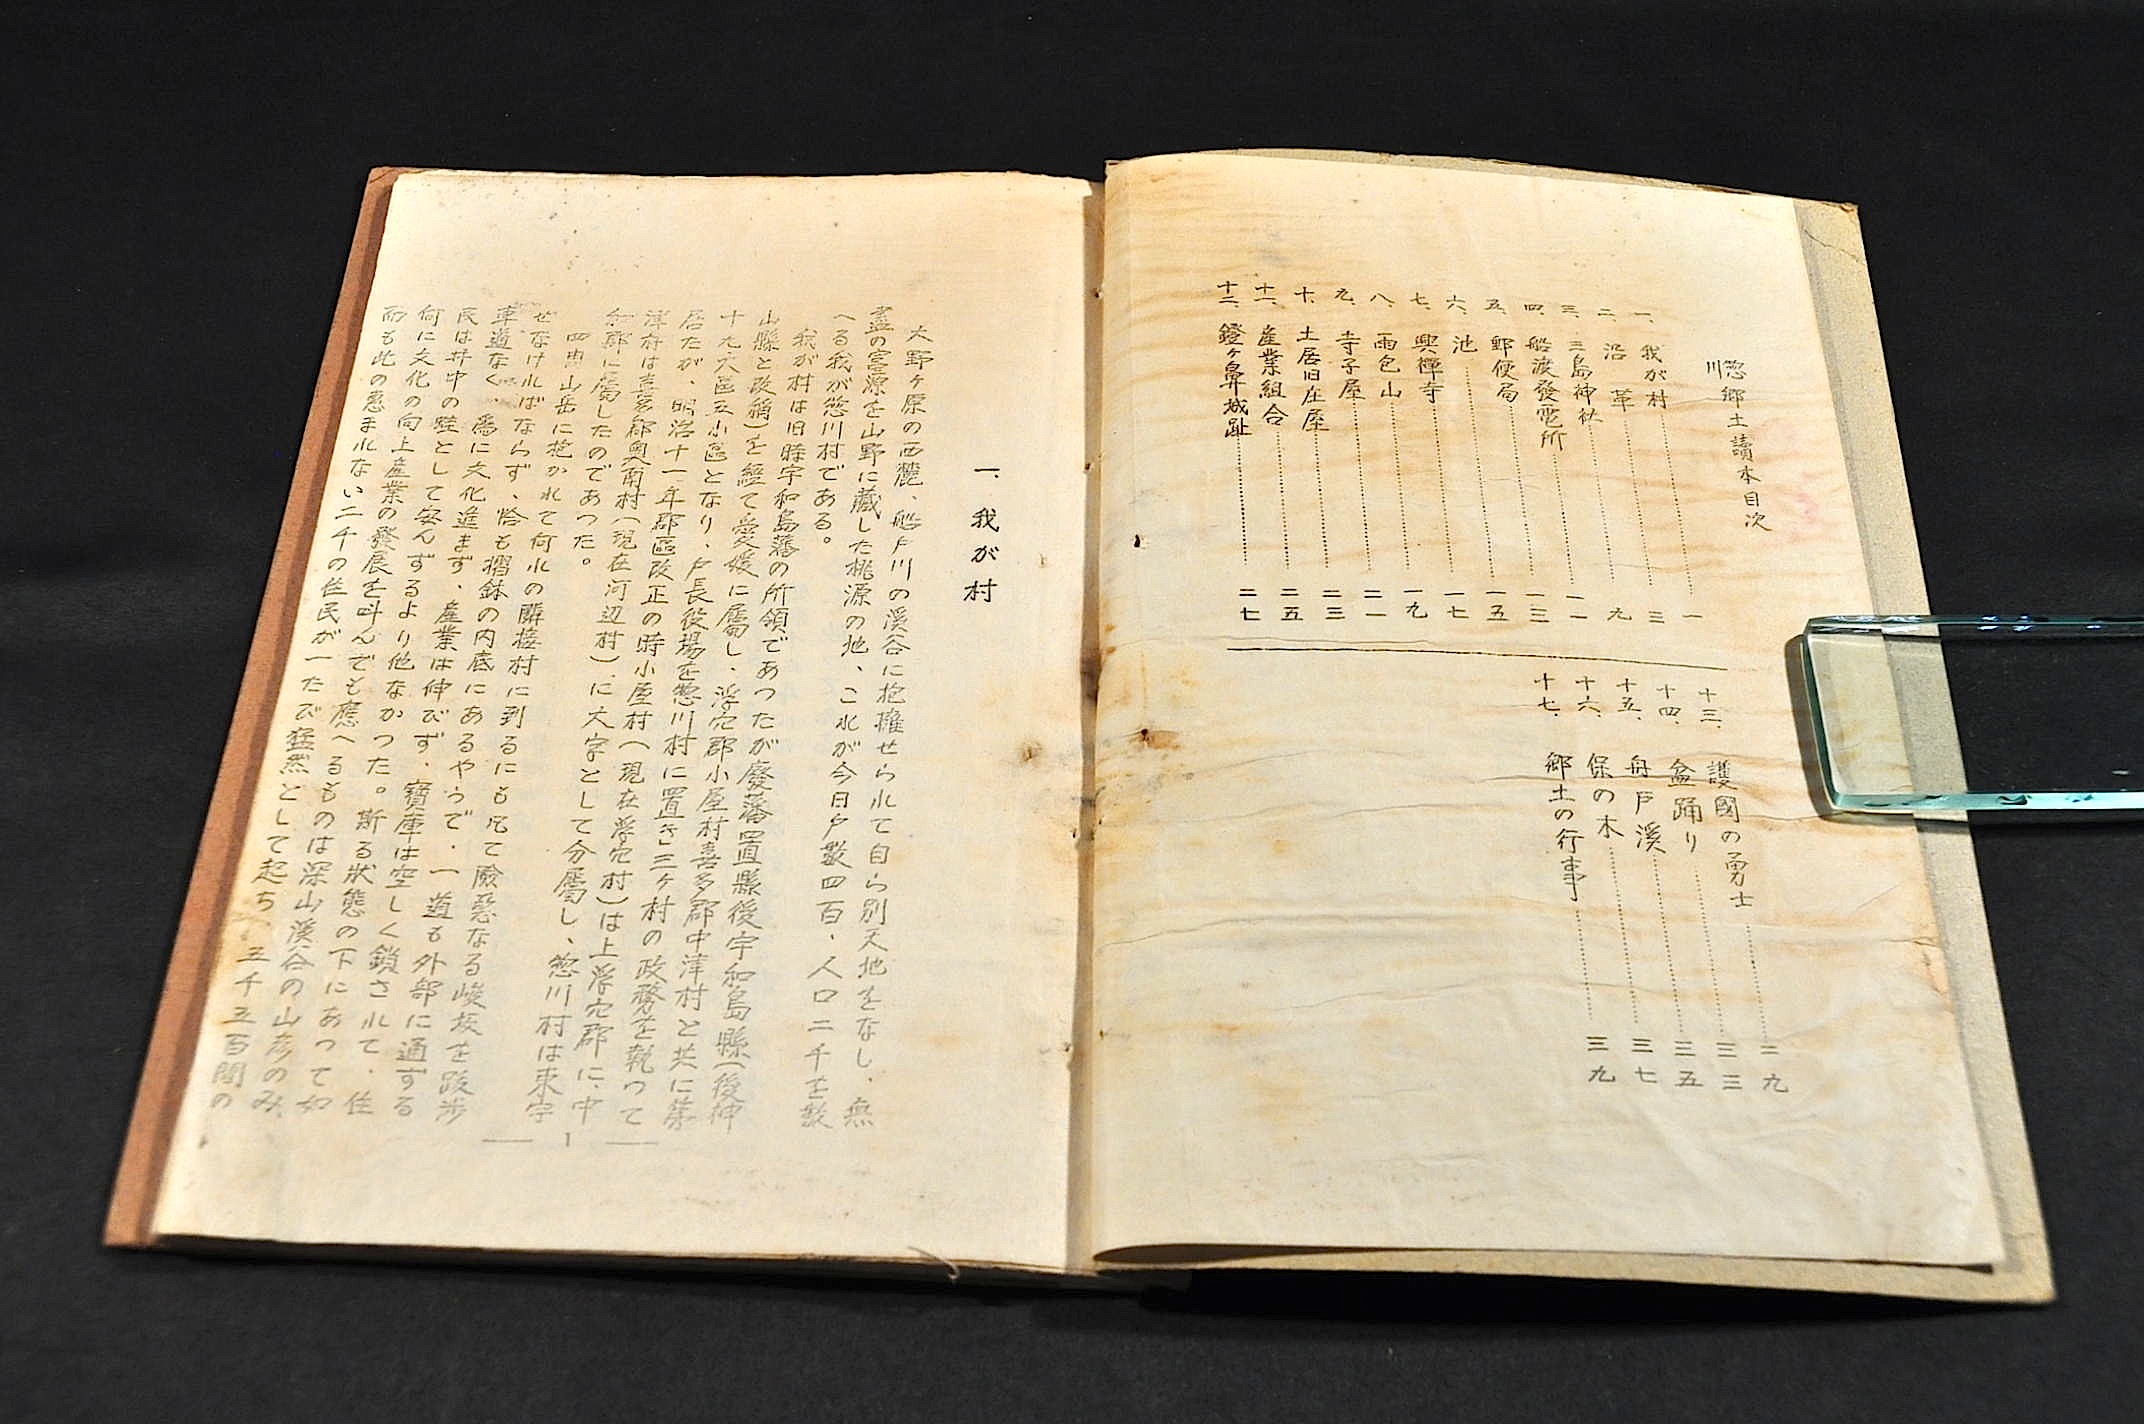 惣川郷土讀本目次
一、我が村 一
二、沿革 三
三、三島神社 九
四、船渡發電所 一一
五、郵便局 一三
六、池 一五
七、興禪寺 一七
八、雨包山 一九
九、寺子屋 二一
十、土居旧庄屋 二三
十一、産業組合 二五
十二、鐙ヶ鼻城趾 二七
十三、護國の勇士 二九
十四、盆踊り 三三
十五、舟戸溪 三五
十六、保の木 三七
十七、郷土の行事 三九
一、我が村
大野ヶ原の西麓、船戸川の溪谷に抱擁せられて自ら別天地をなし、無
盡の宝源を山野に藏した桃源の地、これが今日戸數四百、人口二千を數
へる我が惣川村である。
我が村は旧時宇和島藩の所領であつたが廢藩置縣後宇和島縣(後神
山縣と改稱)を經て愛媛に屬し、浮穴郡小屋村喜多郡中津村と共に第
十九大區五小區となり、戸長役場を惣川村に置き三ヶ村の政務を執つて
居たが、明治十一年郡區改正の時小屋村(現在浮穴村)は上浮穴郡に、中
津村は喜多郡奥南村(現在河辺村)に大字として分屬し、惣川村は東宇
和郡に屬したのであつた。
四囲山岳に抱かれて何れの隣接村に到るにも凡て險惡なる峻坂を跋渉
せなければならず、恰も摺鉢の内底にあるやうで、一道も外部に通ずる
車道なく、爲に文化進まず、産業は伸びず、寶庫は空しく鎖されて、住
民は井中の蛙として安んずるより他なかつた。斯る狀態の下にあつて如
何に文化の向上産業の發展を叫んでも應へるものは深山溪谷の山彦のみ、
而も此の惠まれない二千の住民が一たび猛然として起ち、五千五百間の
— 1 —